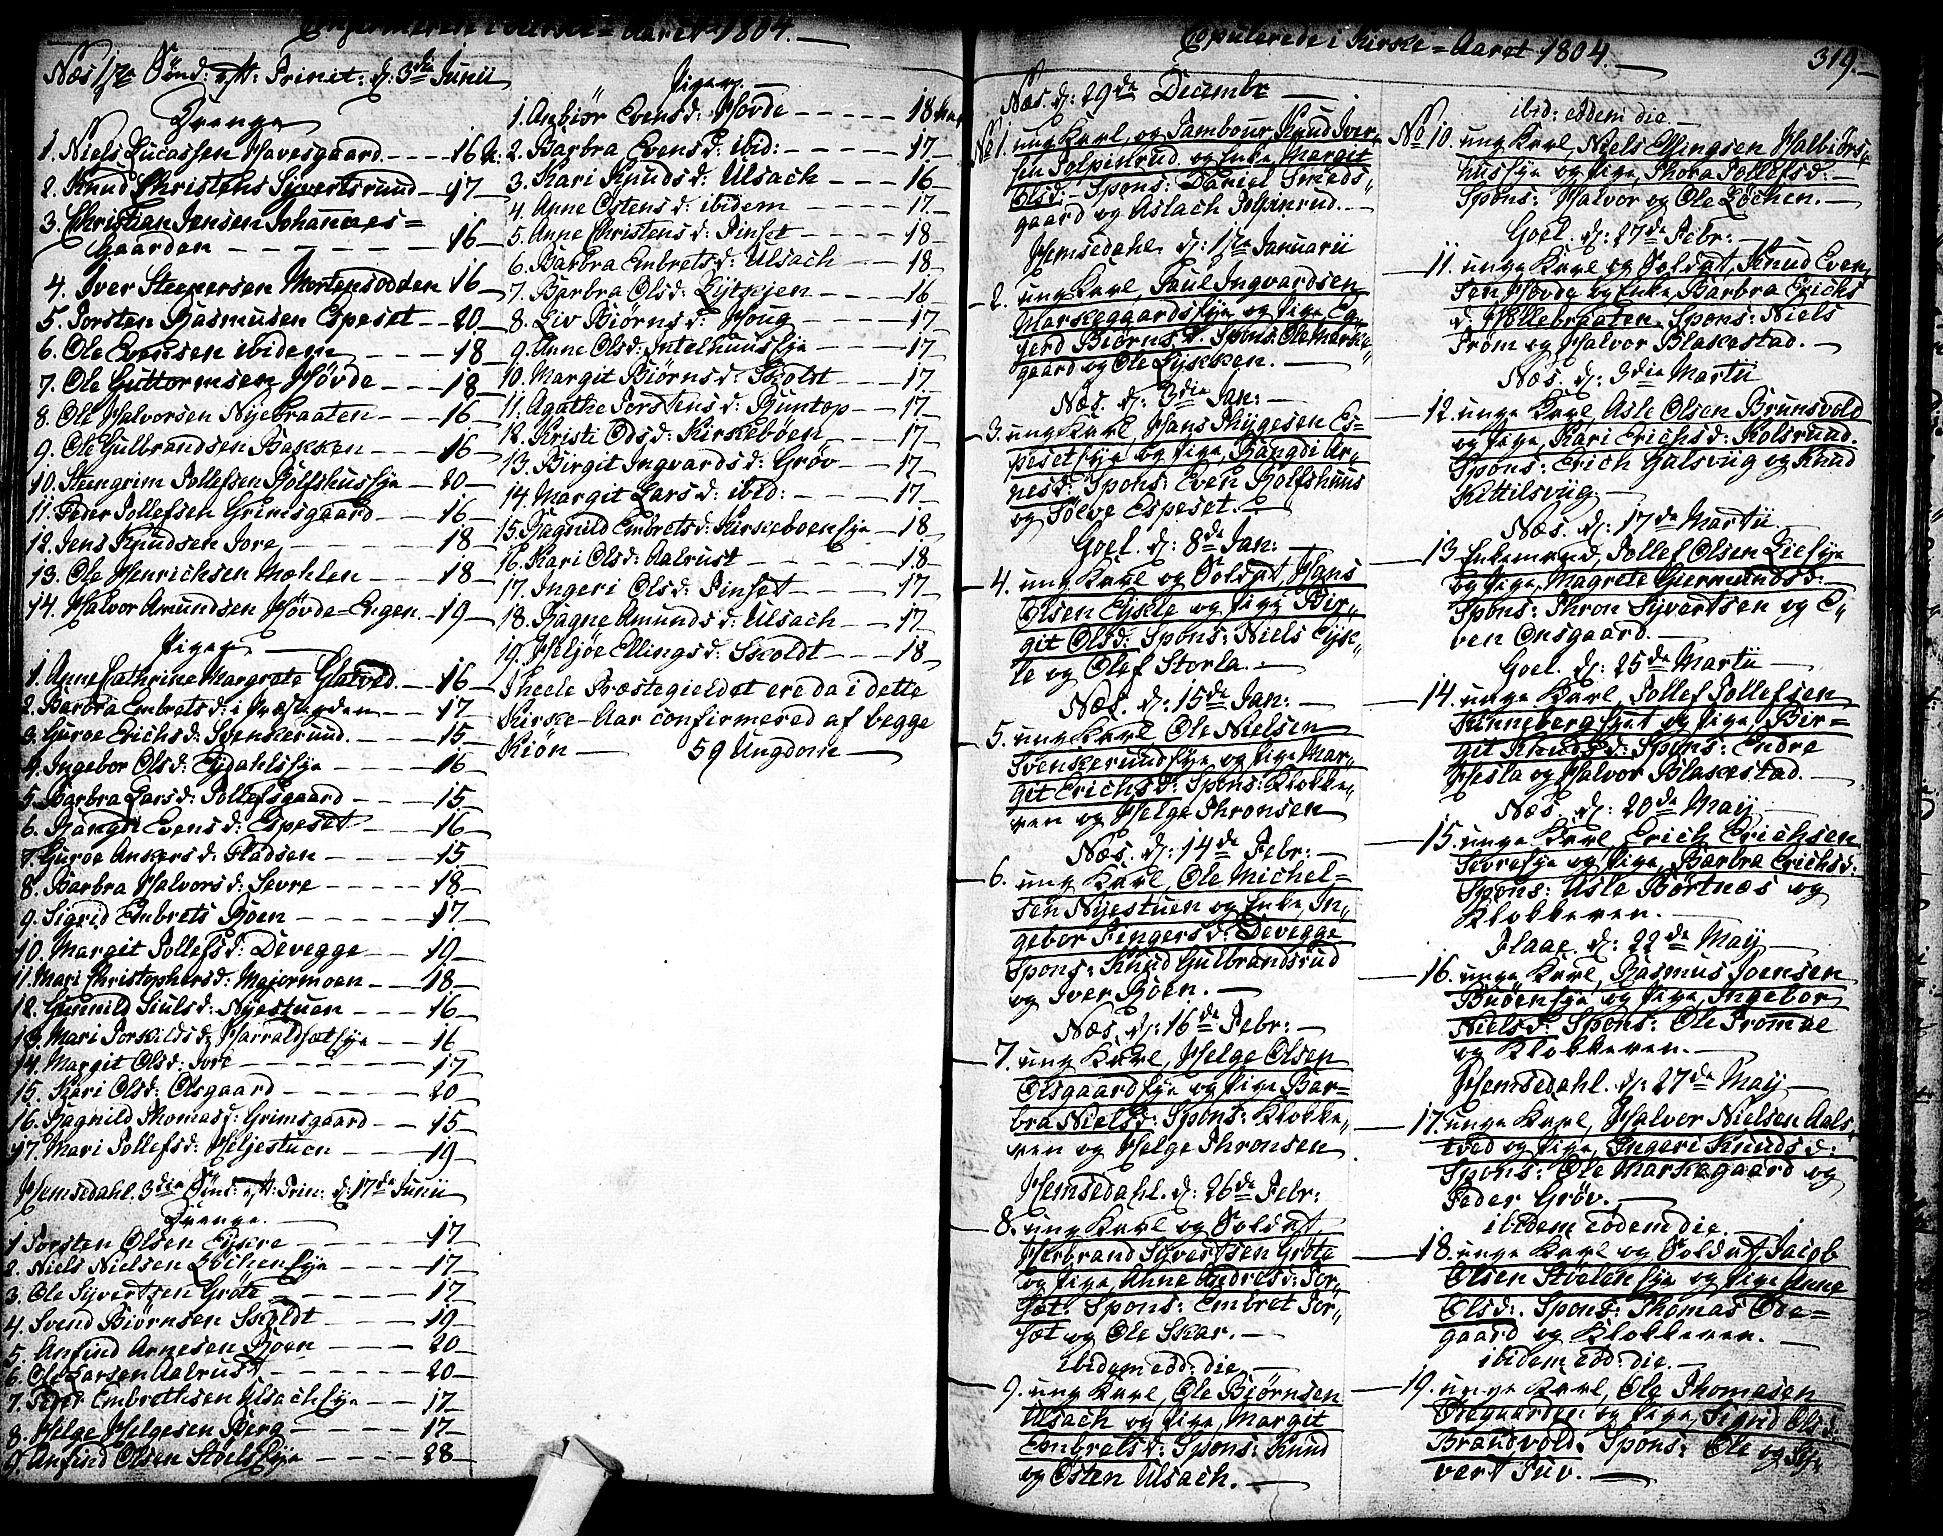 Confirmeren i Kirke-Aaret 1804.
Næs 1ste Sønd: eft: Trinit: d: 3die Junii
Drenge
1. Niels Lucassen Havesgaard - - - 16 A:
2. Knud Christens Syvertsruud - 17
3. Christian Jensen Johannes=
gaarden - - - - - 16
4. Iver Steenersen Mortensodden 16
5. Torsten Rasmusen Espeset - - 20
6. Ole Evensen ibidem - - - 18
7. Ole Guttormsen Høvde - - - 18
8. Ole Halvorsen Nyebraaten - - 16
9. Ole Gulbrandsen Bakken - - 16
10. Steengrim Tollefsen Rolfshus Eye - 20
11. Peder Tollefsen Grimsgaard - - 16
12. Jens Knudsen Tore - - - - 18
13. Ole Henrichsen Mæhlen - - - 18
14. Halvor Amundsen Høvde=Eigen - 19
Piger
1. Anne Cathrine Margrete Glatved - 16
2. Barbra Embretsd: i Præstgrden - - 17
3. Guroe Erichsd: Svenkerund - - 15
4. Ingebor Olsd: Eydahls Eye - - - 16
5. Barbra Larsd: Tollefsgaard - - - 15
6. Rangdi Evensd: Espeset - - - 16
7. Guroe Ankersd: Fladsen - - - - 15
8. Barbra Halvorsd: Sevre - - - - 18
9. Sigrid Embrets Roen - - - - - 17
10. Margit Tollefsd: Devegge - - - 19
11. Mari Christophersd: Majormoen - - 18
12. Gunnild Siulsd: Nyestuen - - - 16
13. Mari Torkildsd: Harraldset Eye - - 16
14. Margit Olsd: Tore - - - - - 17
15. Kari Olsd: Olsgaard - - - - - 20
16. Ragnild Thomasd: Grimsgaard - - 15
17. Mari Tollefsd: Heljestuen - - - 19
Hemsedahl. 3die Sønd: eft: Trin: d: 17de Junii
Drenge.
1 Torsten Olsen Eykre - - - - 17
2. Niels Nielsen Løchens Eye - - - 17
3. Ole Syvertsen Grøte - - - - - 17
4. Svend Biørnsen Skoldt - - - - 19
5. Anfind Arnesen Roen - - - - 20
6. Ole Larsen Aalrust - - - - - 20
7. Peder Embrethsen Ulsachs Eye - - 17
8. Helge Helgesen Berg - - - - - 17
9. Anfind Olsen Støels Eye - - - - 28
Piger
1. Anbiör Evensd: Høvde - - - - - 18 Aar
2. Barbra Evensd: ibid: - - - - 17
3. Kari Knudsd: Ulsach - - - - 16
4. Anne Østensd: ibidem - - - - 17
5. Anne Christensd: Finset - - - - 18
6. Barbra Embretsd: Ulsach - - - 18
7. Barbra Olsd: Eytkjen - - - - 16
8. Liv Biørnsd: Houg - - - - - 17
9. Anne Olsd: Intelhuus Eye - - - 17
10. Margit Biørnsd: Skolst - - - 17
11. Agathe Torstensd: Runtop - - 17
12. Kristi Odsd: Kirkebøen - - - 17
13. Birgit Ingvardsd: Grøv - - - 17
14. Margit Larsd: ibid: - - - - 17
15. Ragnild Embretsd: Kirkeboen Eye - - 18
16. Kari Olsd: Aalrust - - - - - 18
17. Ingeri Olsd: Finset - - - - 17
18. Ragne Amundsd: Ulsach - - - 17
19. Heljøe Ellingsd: Skoldt - - - 18
I heele Præstegieldet ere da i dette
Kirke-Aar confirmered af begge
Kiøn — 59 Ungdom
Copulerede i Kirke=Aaret 1804. 319.
Næs. d: 29de Decembr
No 1. ung Karl, og Tambour, Knud Iver
sen Tolpinrud og Enke, Margit
Olsd: Spons: Daniel Smeds
gaard og Aslach Tolpinrud.
Hemsedahl d: 1ste Januarii
2. ung Karl, Paul Ingvardsen
Markegaards Eye og Pige Eg
gerd Biørnsd: Spons: Ole Marke
gaard og Ole Eykken.
Næs. d: 3die Jan:
3. ung Karl, Hans Thygesen Es=
peset Eye og Pige, Rangdi Ar
nesd: Spons: Even Rolfshuus
og Tolve Espeset.
Goel. d: 8de Jan:
4. ung Karl og Soldat, Hans
Olsen Eykle og Pige Bir
git Olsd: Spons: Niels Eyk
le og Olef Storla.
Næs. d: 15de Jan:
5. ung Karl Ole Nielsen
Svenkerund Eye og Pige, Mar
git Erichsd: Spons: Klokke
ren og Helge Thronsen
Næs. d: 14de Febr:
6. ung Karl, Ole Michel=
sen Nyestuen og Enke, In
gebor Fingersd: Devegge
Spons: Knud Gulbrandsrud
og Iver Roen.
Næs. d: 16de Febr:
7. ung Karl, Helge Olsen
Olsgaards Eye og Pige Bar=
bra Nielsd: Spons: Klokke
ren og Helge Thronsen
Hemsedahl. d: 26de Febr:
8. ung Karl og Soldat
Herbrand Syvertsen Grøte
og Pige, Anne Andresd: Tor
set. Spons: Embret Tor
set og Ole Skar.
ibidem eod: die
9. ung Karl, Ole Biørnsen
Ulsach og Pige, Margit
Embretsd: Spons: Knud
og Østen Ulsach.
ibid: eodem die.
No 10. ung Karl, Niels Ellingsen Halvors
huus Eye og Pige, Thora Tollefsd:
Spons: Halvor og Ole Løchen.
Goel. d: 27de Febr:
11. unge Karl og Soldat, Knud Even
sen Høvde og Enke Barbra Erichs
d: Møllebraaten. Spons: Niels
From og Halvor Blakestad.
Næs. d: 3die Martii
12. unge Karl, Asle Olsen Brunsvold
og Pige, Kari Erichsd: Kolsrund.
Spons: Erich Gulsvig og Knud
Kittilsviig
Næs. d: 17de Martii
13. Enkemand, Tollef Olsen Lie Eye
og Pige, Magrete Giermundsd:
Spons: Thron Syvertsen og E
ven Onsgaard.
Goel. d: 25de Martii
14. unge Karl Tollef Tollefsen
Kinneberg Eyet og Pige, Bir=
git Knudsd: Spons: Endre
Hesla og Halvor Blakestad.
Næs. d: 20de Maij
15. unge Karl, Erich Erichsen
Sevre Eye og Pige, Barbra Erichsd:
Spons: Asle Børtnæs og
Klokkeren.
Flaae. d: 22de Maij
16. unge Karl, Rasmus Joensen
Buøen Eye og Pige, Ingebor
Nielsd: Spons: Ole Tromøe
og Klokkeren.
Hemsedahl. d: 27de Maij
17. unge Karl, Halvor Nielsen Aals
tved og Pige, Ingeri Knudsd:
Spons: Ole Markegaard og
Peder Grøv.
ibidem eodem die.
18. unge Karl og Soldat, Jacob
Olsen Støelen Eye og Pige Anne
Olsd: Spons: Thomas Ode=
gaard og Klokkeren.
ibidem eod: die.
19. unge Karl, Ole Thomesen
Øegaarden og Pige, Sigrid Olsd:
Brandvold. Spons: Ole og Sy
vert Tuv.